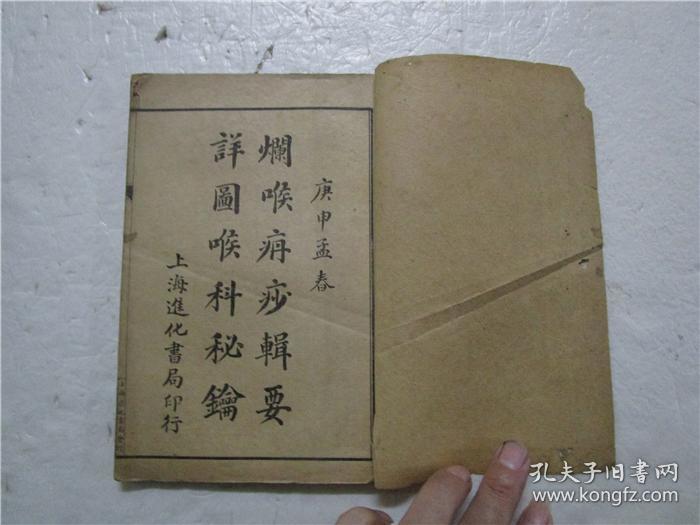 庚申孟春
爛喉痧痧輯要
詳圖喉科秘鑰
上海進化書局印行
孔夫子旧书网
www.kongfz.com